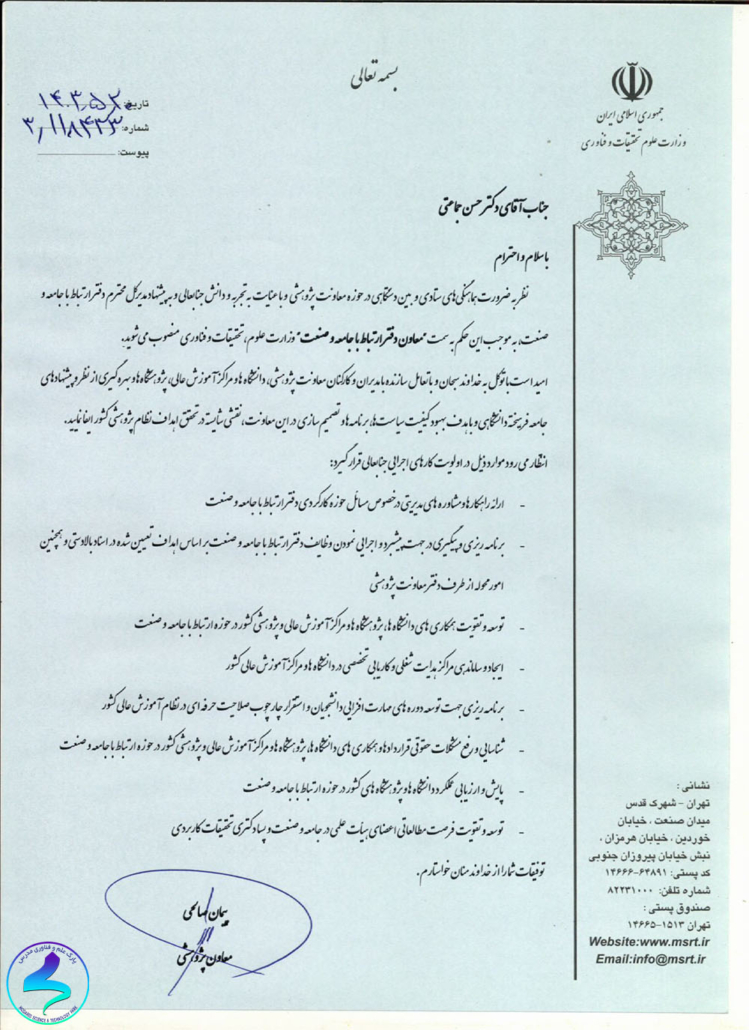 بسمه تعالی
جمهوری اسلامی ایران
وزارت علوم تحقیقات و فناوری
تاریخ:
شماره:
پیوست:
جناب آقای دکتر حسن جماعتی
با سلام و احترام
نظر به ضرورت هماهنگی های ستادی و بین دستگاهی در حوزه معاونت پژوهشی و با عنایت به تجربه و دانش جنابعالی و به پیشنهاد مدیرکل محترم دفتر ارتباط با جامعه و
صنعت، به موجب این حکم به سمت "معاون دفتر ارتباط با جامعه و صنعت" وزارت علوم، تحقیقات و فناوری منصوب می شوید.
امید است با توکل به خداوند سبحان و با تعامل سازنده با مدیران و کارکنان معاونت پژوهشی، دانشگاه ها و مراکز آموزش عالی، پژوهشگاه ها و بهره گیری از نظر و پیشنهادهای
جامعه فرهیخته دانشگاهی و با هدف بهبود کیفیت سیاست ها، برنامه ها و تصمیم سازی در این معاونت، نقشی شایسته در تحقق اهداف نظام پژوهشی کشور ایفا نمایید.
انتظار می رود موارد ذیل در اولویت کارهای اجرایی جنابعالی قرار گیرد:
- ارائه راهکارها و مشاوره های مدیریتی در خصوص مسائل حوزه کارکردی دفتر ارتباط با جامعه و صنعت
- برنامه ریزی و پیگیری در جهت پیشبرد و اجرایی نمودن وظایف دفتر ارتباط با جامعه و صنعت بر اساس اهداف تعیین شده در اسناد بالادستی و همچنین
امور محوله از طرف دفتر معاونت پژوهشی
- توسعه و تقویت همکاری های دانشگاه ها، پژوهشگاه ها و مراکز آموزش عالی و پژوهشی کشور در حوزه ارتباط با جامعه و صنعت
- ایجاد و ساماندهی مراکز هدایت شغلی و کاریابی تخصصی در دانشگاه ها و مراکز آموزش عالی کشور
- برنامه ریزی جهت توسعه دوره های مهارت افزایی دانشجویان و استقرار چارچوب صلاحیت حرفه ای در نظام آموزش عالی کشور
- شناسایی و رفع مشکلات حقوقی قراردادها و همکاری های دانشگاه ها، پژوهشگاه ها و مراکز آموزش عالی و پژوهشی کشور در حوزه ارتباط با جامعه و صنعت
- پایش و ارزیابی عملکرد دانشگاه ها و پژوهشگاه های کشور در حوزه ارتباط با جامعه و صنعت
- توسعه و تقویت فرصت مطالعاتی اعضای هیأت علمی در جامعه و صنعت و پسادکتری تحقیقات کاربردی
توفیقات شما را از خداوند منان خواستارم.
پیمان صالحی
معاون پژوهشی
نشانی :
تهران - شهرک قدس
میدان صنعت ، خیابان
خوردین ، خیابان هرمزان ،
نبش خیابان پیروزان جنوبی
کد پستی: ۶۴۸۹۱-۱۴۶۶۶
شماره تلفن: ۸۲۲۳۱۰۰۰
صندوق پستی :
تهران ۱۵۱۳-۱۴۶۶۵
Website:www.msrt.ir
Email:info@msrt.ir
پارک علم و فناوری مدرس
MODARES SCIENCE & TECHNOLOGY PARK